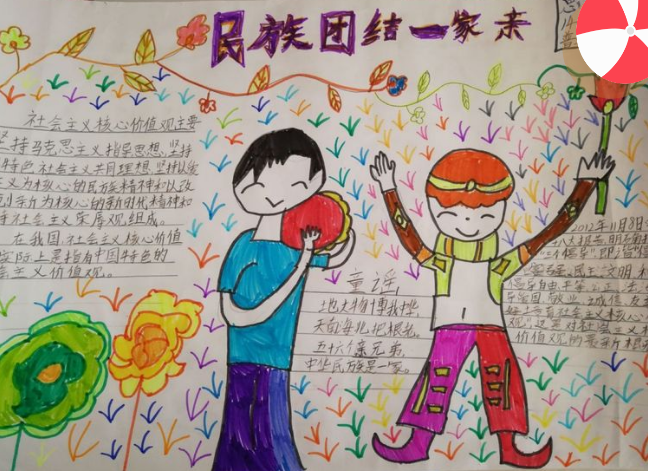 民族团结一家亲
社会主义核心价值观主要
坚持马克思主义指导思想,坚持
特色社会主义共同理想,坚持以爱
主义为核心的民族精神和以改
创新为核心的新时代精神和
社会主义荣辱观,组成。
在我国,社会主义核心价值
实际上是指有中国特色的
主义价值观。
童谣
地大物博我中华,
天南海北把根扎。
五十六个亲兄弟,
中华民族是一家。
2012年11月8日
八大报告,明
个倡导",即"倡
富强、民主、文明、和
倡导自由、平等、公正、法
导爱国、敬业、诚信、友
培育社会主义核心
观",这是对社会主义核
价值观的最新概